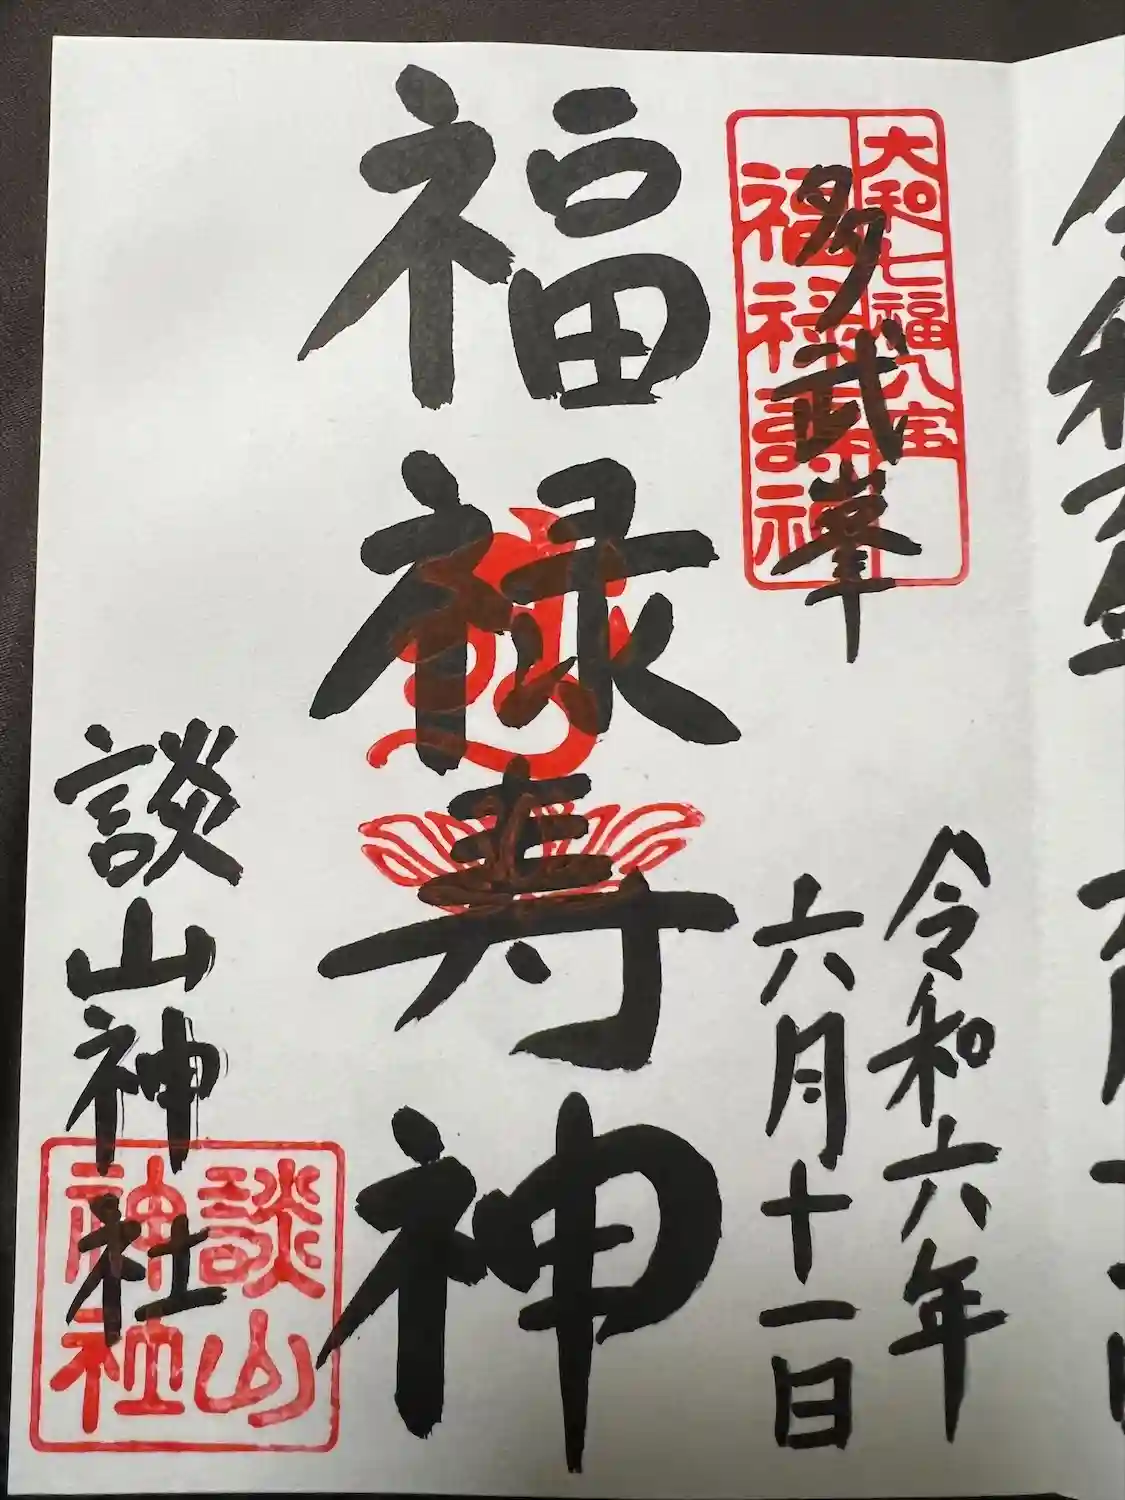 大和七福八宝
福禄談社
多武峯
令和六年
六月十一日
福禄寿神
談山神社
談山
神社